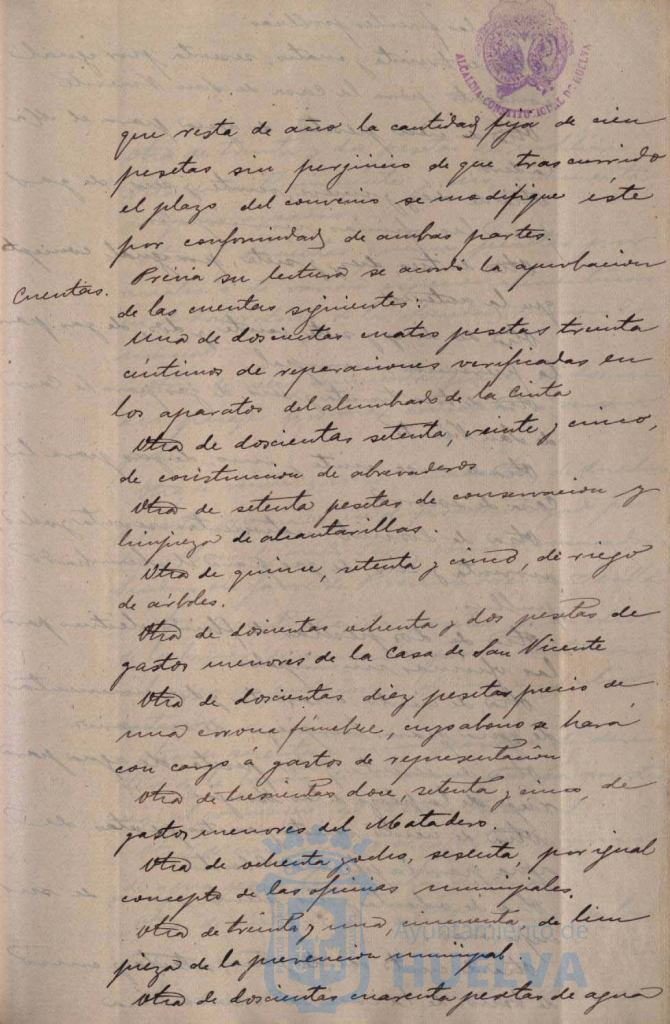 ALCALDIA CONSTITUCIONAL DE HUELVA
que resta de año la cantidad fija de cien
pesetas sin perjuicio de que trascurrido
el plazo del convenio se modifique éste
por conformidad de ambas partes.
Cuentas.
Previa su lectura se acordó la aprobacion
de las cuentas siguientes:
Una de doscientas cuatro pesetas treinta
céntimos de reparaciones verificadas en
los aparatos del alumbrado de la Cinta
Otra de doscientas setenta, veinte y cinco,
de construccion de abrevaderos
Otra de setenta pesetas de conservacion y
limpieza de alcantarillas.
Otra de quince, setenta y cinco, de riego
de árboles.
Otra de doscientas ochenta y dos pesetas de
gastos menores de la casa de San Vicente
Otra de doscientas diez pesetas precio de
una corona fúnebre, cuyo abono se hará
con cargo á gastos de representación
Otra de trescientas doce, setenta y cinco, de
gastos menores del Matadero.
Otra de ochenta y ocho, sesenta, por igual
concepto de las oficinas municipales.
Otra de treinta y una, cincuenta de lim
pieza de la prevencion municipal
Otra de doscientas cuarenta pesetas de agua
Ayuntamiento de
HUELVA